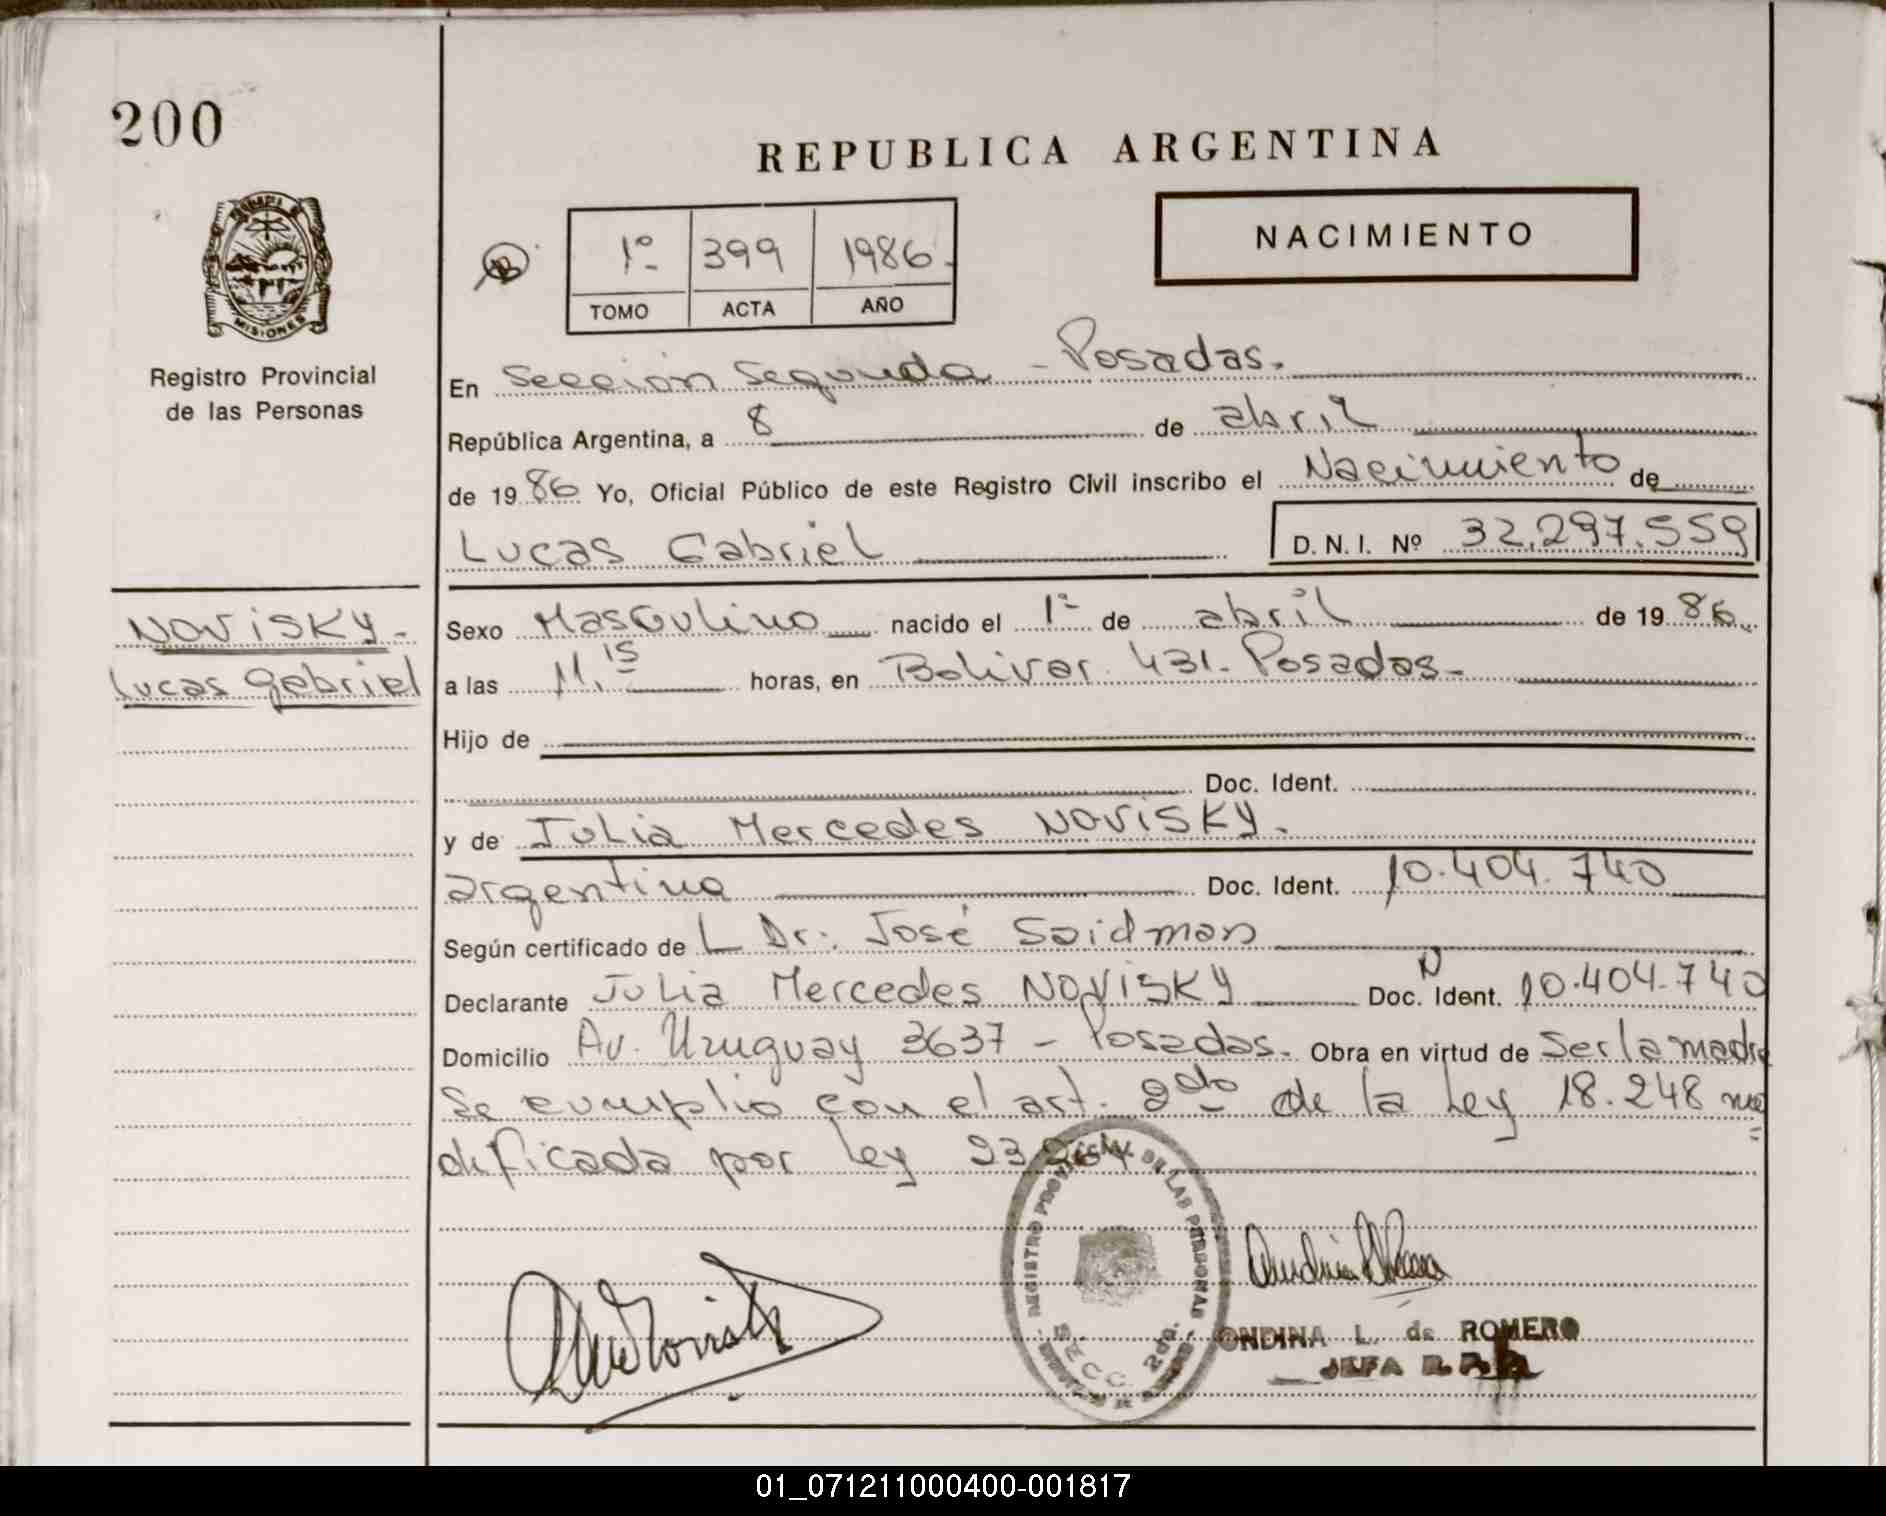 200
REPUBLICA ARGENTINA
PROVINCIA DE MISIONES
1º 399 1986.
TOMO ACTA AÑO
NACIMIENTO
Registro Provincial
de las Personas
En Sección Segunda - Posadas.
República Argentina, a 8 de abril
de 1986 Yo, Oficial Público de este Registro Civil inscribo el Nacimiento de
Lucas Gabriel D.N.I. Nº 32.297.559
NOVISKY.
Lucas Gabriel
Sexo Masculino nacido el 1º de abril de 1986.
a las 11,15 horas, en Bolivar 431. Posadas.
Hijo de
Doc. Ident.
y de Julia Mercedes NOVISKY.
argentina Doc. Ident. 10.404.740
Según certificado de L Dr. José Soidman
Declarante Julia Mercedes NOVISKY Doc. Ident. 10.404.740
Domicilio Av. Uruguay 3637 - Posadas. Obra en virtud de Ser la madre
Se cumplio con el art. 2do de la Ley 18.248 mo
dificada por ley 23.264
REGISTRO PROVINCIAL DE LAS PERSONAS
SECC. 2da.
ONDINA L. de ROMERO
JEFA
01_071211000400-001817